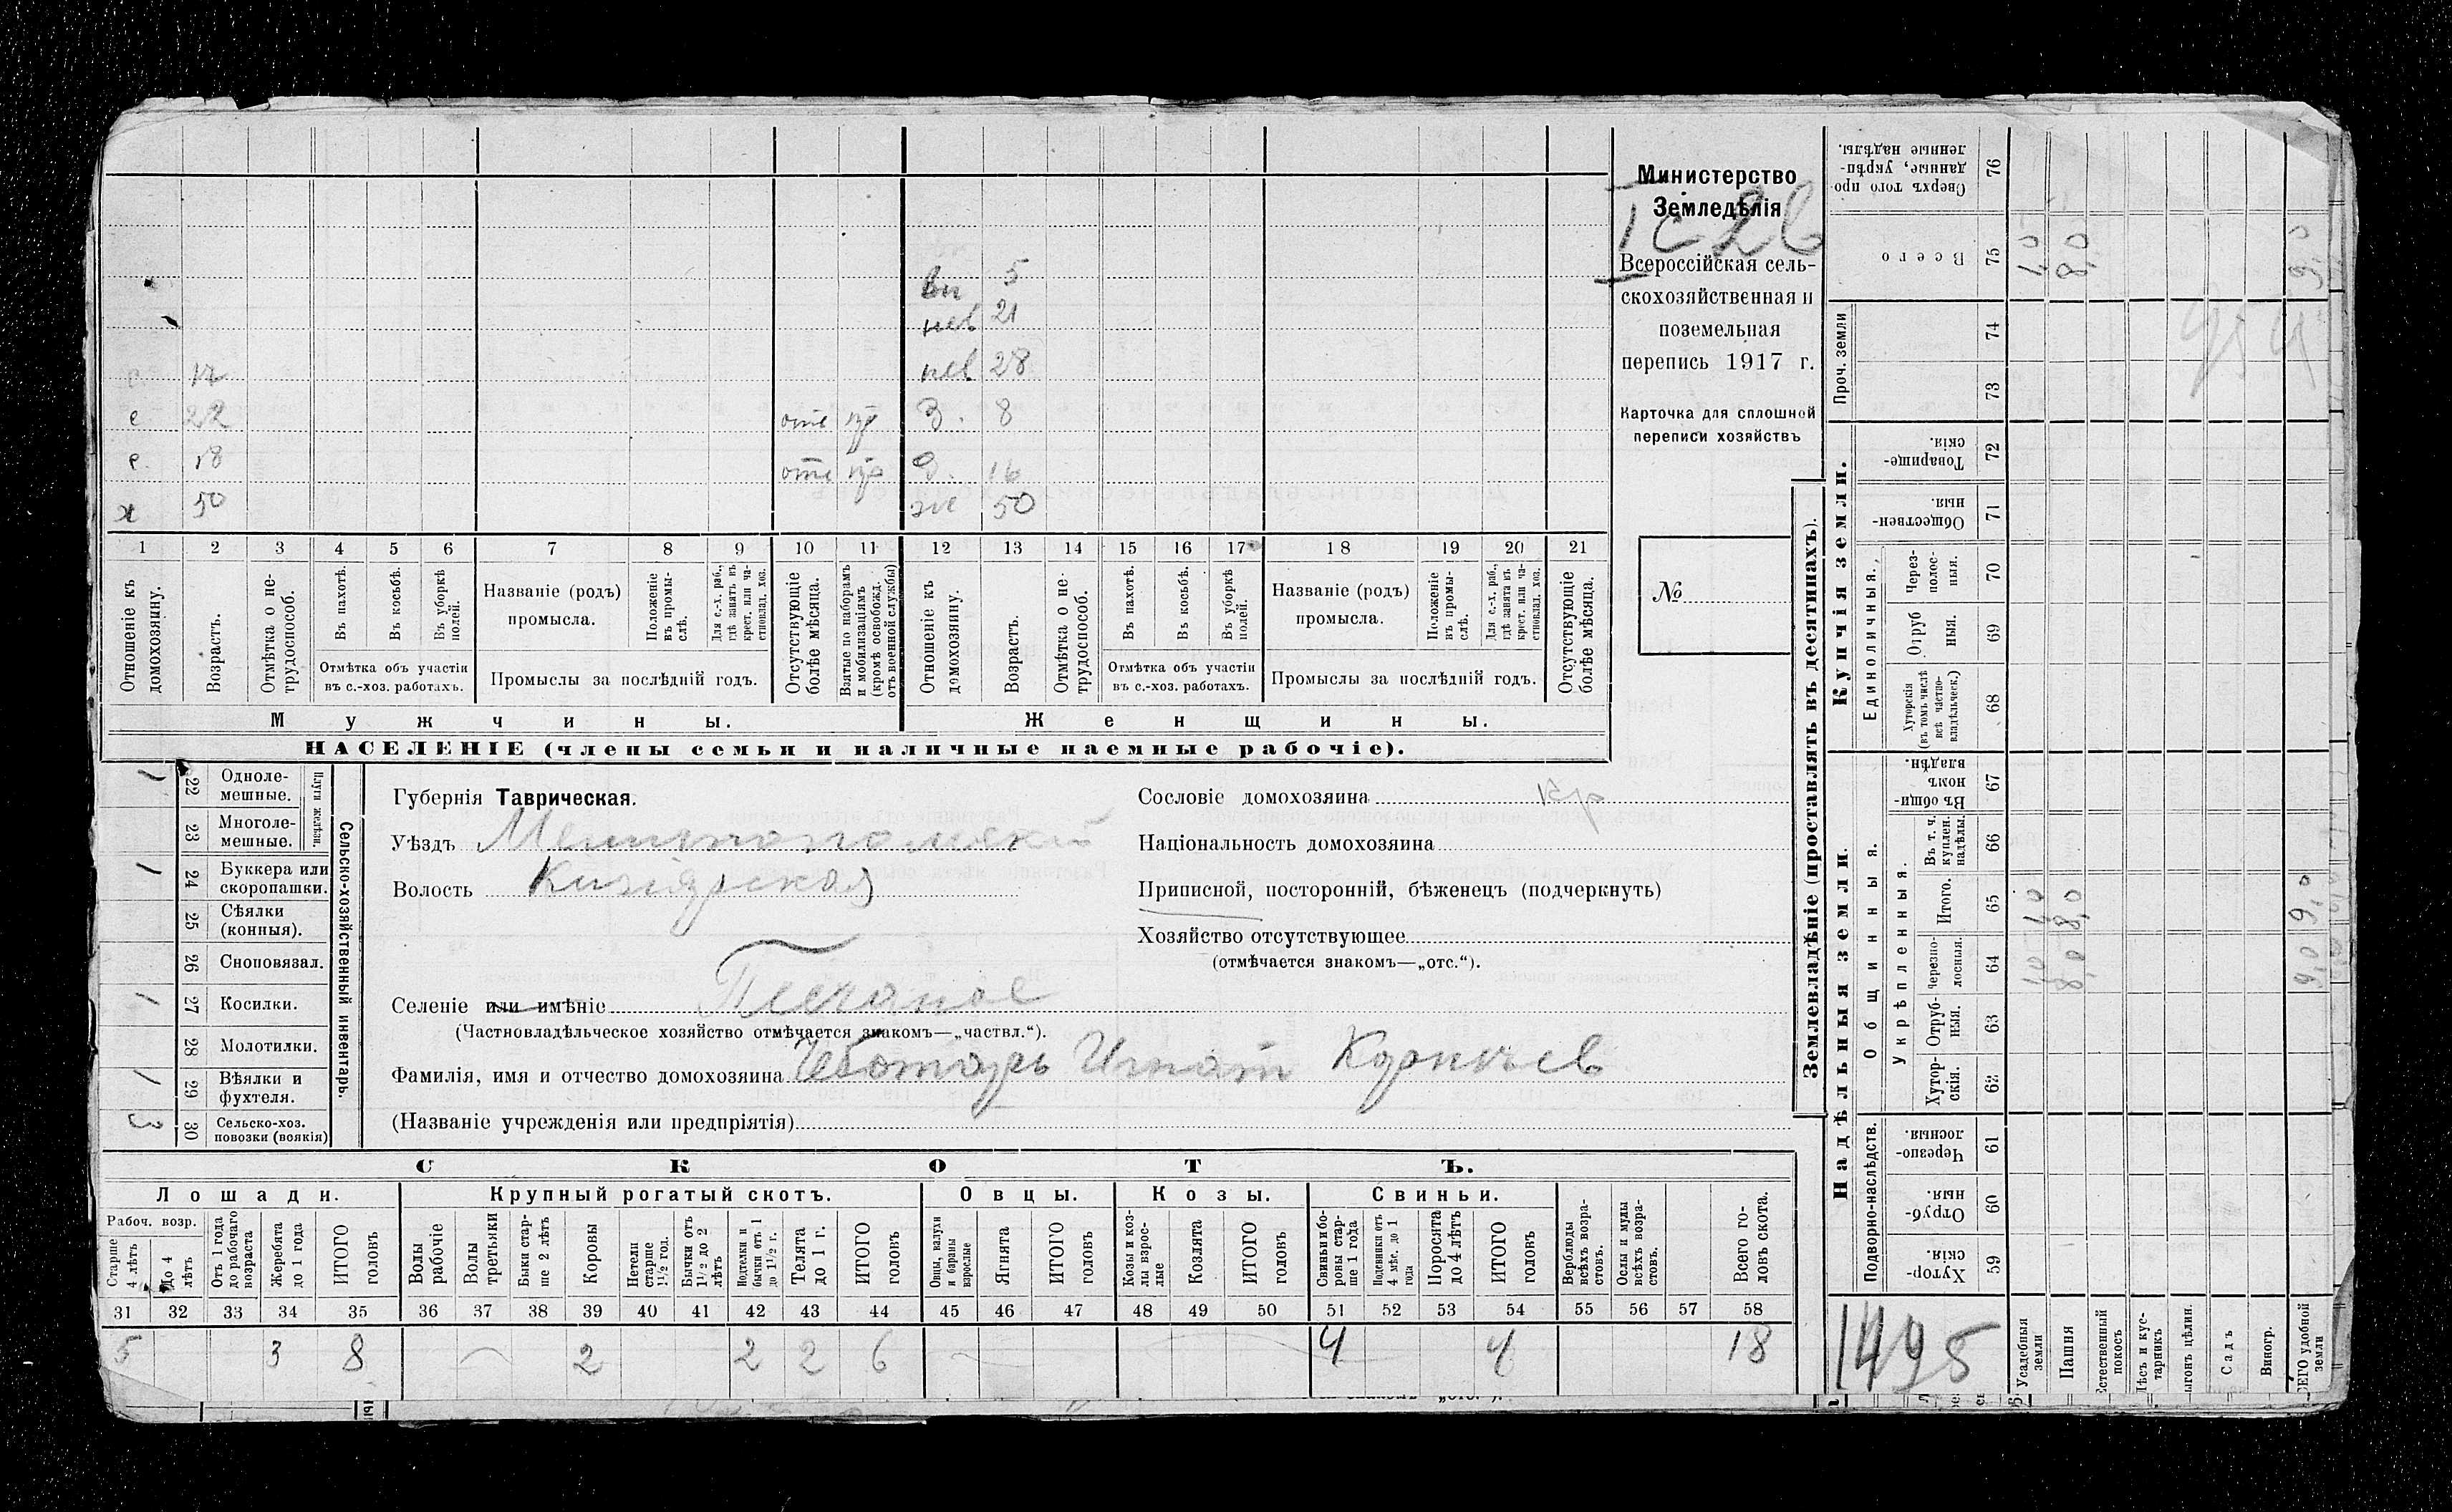 Министерство
Земледѣлія
Всероссійская сель-
скохозяйственная и
поземельная
перепись 1917 г.
Карточка для сплошной
переписи хозяйствъ
№
вн 5
нев 21
нев 28
с 22 отс Д. 8
с. 18 отс Д. 16
х 50 же 50
1 2 3 4 5 6 7 8 9 10 11 12 13 14 15 16 17 18 19 20 21
Отношеніе къ домохозяину.
Возрастъ.
Отмѣтка о не-трудоспособ.
Въ пахотѣ.
Въ косьбѣ.
Въ уборкѣ полей.
Отмѣтка объ участіи
въ с.-хоз. работахъ.
Названіе (родъ)
промысла.
Положеніе въ промы-слѣ.
Для с.-х. раб., гдѣ занятъ въ крест. или ча-стновлад. хоз.
Промыслы за послѣдній годъ.
Отсутствующіе болѣе мѣсяца.
Взятые по наборамъ и мобилизаціямъ (кромѣ освобожд. отъ военной службы)
Отношеніе къ домохозяину.
Возрастъ.
Отмѣтка о не-трудоспособ.
Въ пахотѣ.
Въ косьбѣ.
Въ уборкѣ полей.
Отмѣтка объ участіи
въ с.-хоз. работахъ.
Названіе (родъ)
промысла.
Положеніе въ промы-слѣ.
Для с.-х. раб., гдѣ занята въ крест. или ча-стновлад. хоз.
Промыслы за послѣдній годъ.
Отсутствующіе болѣе мѣсяца.
Мужчины. Женщины.
НАСЕЛЕНІЕ (члены семьи и наличные наемные рабочіе).
Сельско-хозяйственный инвентарь.
Плуги желѣзн.
1 22 Одноле-мешные.
23 Многоле-мешные.
1 24 Буккера или скоропашки.
25 Сѣялки (конныя).
26 Сноповязал.
1 27 Косилки.
28 Молотилки.
1 29 Вѣялки и фухтеля.
3 30 Сельско-хоз. повозки (всякія)
Губернія Таврическая.
Уѣздъ Мелитопольскій
Волость Кизіярская
Селеніе или имѣніе Песчаное
(Частновладѣльческое хозяйство отмѣчается знакомъ—„частвл.“).
Фамилія, имя и отчество домохозяина Чеботарь Игнат Корнѣев
(Названіе учрежденія или предпріятія)
Сословіе домохозяина кр
Національность домохозяина
Приписной, посторонній, бѣженецъ (подчеркнуть)
Хозяйство отсутствующее
(отмѣчается знакомъ—„отс.“).
СКОТЪ.
Лошади. Крупный рогатый скотъ. Овцы. Козы. Свиньи.
Рабоч. возр.
Старше 4 лѣтъ
До 4 лѣтъ
Отъ 1 года до рабочаго возраста
Жеребята до 1 года
ИТОГО головъ
Волы рабочіе
Волы третьяки
Быки стар-ше 2 лѣтъ
Коровы
Нетели старше 1½ год.
Бычки отъ 1½ до 2 лѣтъ
Подтелки и бычки отъ 1 до 1½ г.
Телята до 1 г.
ИТОГО головъ
Овцы, валухи и бараны взрослые
Ягнята
ИТОГО головъ
Козы и коз-лы взрос-лые
Козлята
ИТОГО головъ
Свиньи бо-ровы стар-ше 1 года
Подсвинки отъ 4 мѣс. до 1 года
Поросята до 4 лѣтъ
ИТОГО головъ
Верблюды всѣхъ возра-стовъ.
Ослы и мулы всѣхъ возра-стовъ.
Всего го-ловъ скота.
31 32 33 34 35 36 37 38 39 40 41 42 43 44 45 46 47 48 49 50 51 52 53 54 55 56 57 58
5 3 8 2 2 2 6 4 4 18
Землевладѣніе (проставлять въ десятинахъ).
Купчія земли.
Надѣльныя земли.
Сверхъ того про данные, укрѣп-ленные надѣлы. 76
Всего 75 1,0 8,0 9,0
Проч. земли 74 73
Товарище-скія. 72
Обществен-ныя. 71
Единоличныя.
Через-полос-ныя. 70
Отруб ныя. 69
Хуторскія (въ томъ числѣ всѣ частно-владѣльческ.) 68
Общинныя.
Въ общи номъ владѣн. 67
Укрѣпленныя.
Въ т. ч. куплен. надѣлы. 66
Итого. 65 1,0 8,0 9,0
Черезпо-лосныя. 64 1,0 8,0 9,0
Отруб-ныя. 63
Хутор-скія. 62
Подворно-наслѣдств.
Черезпо-лосныя. 61
Отруб-ныя. 60
Хутор-скія. 59
1495
Усадебныя земли
Пашня
Естественный покосъ
Лѣсъ и кус-тарникъ
Садъ
Виногр.
удобной земли